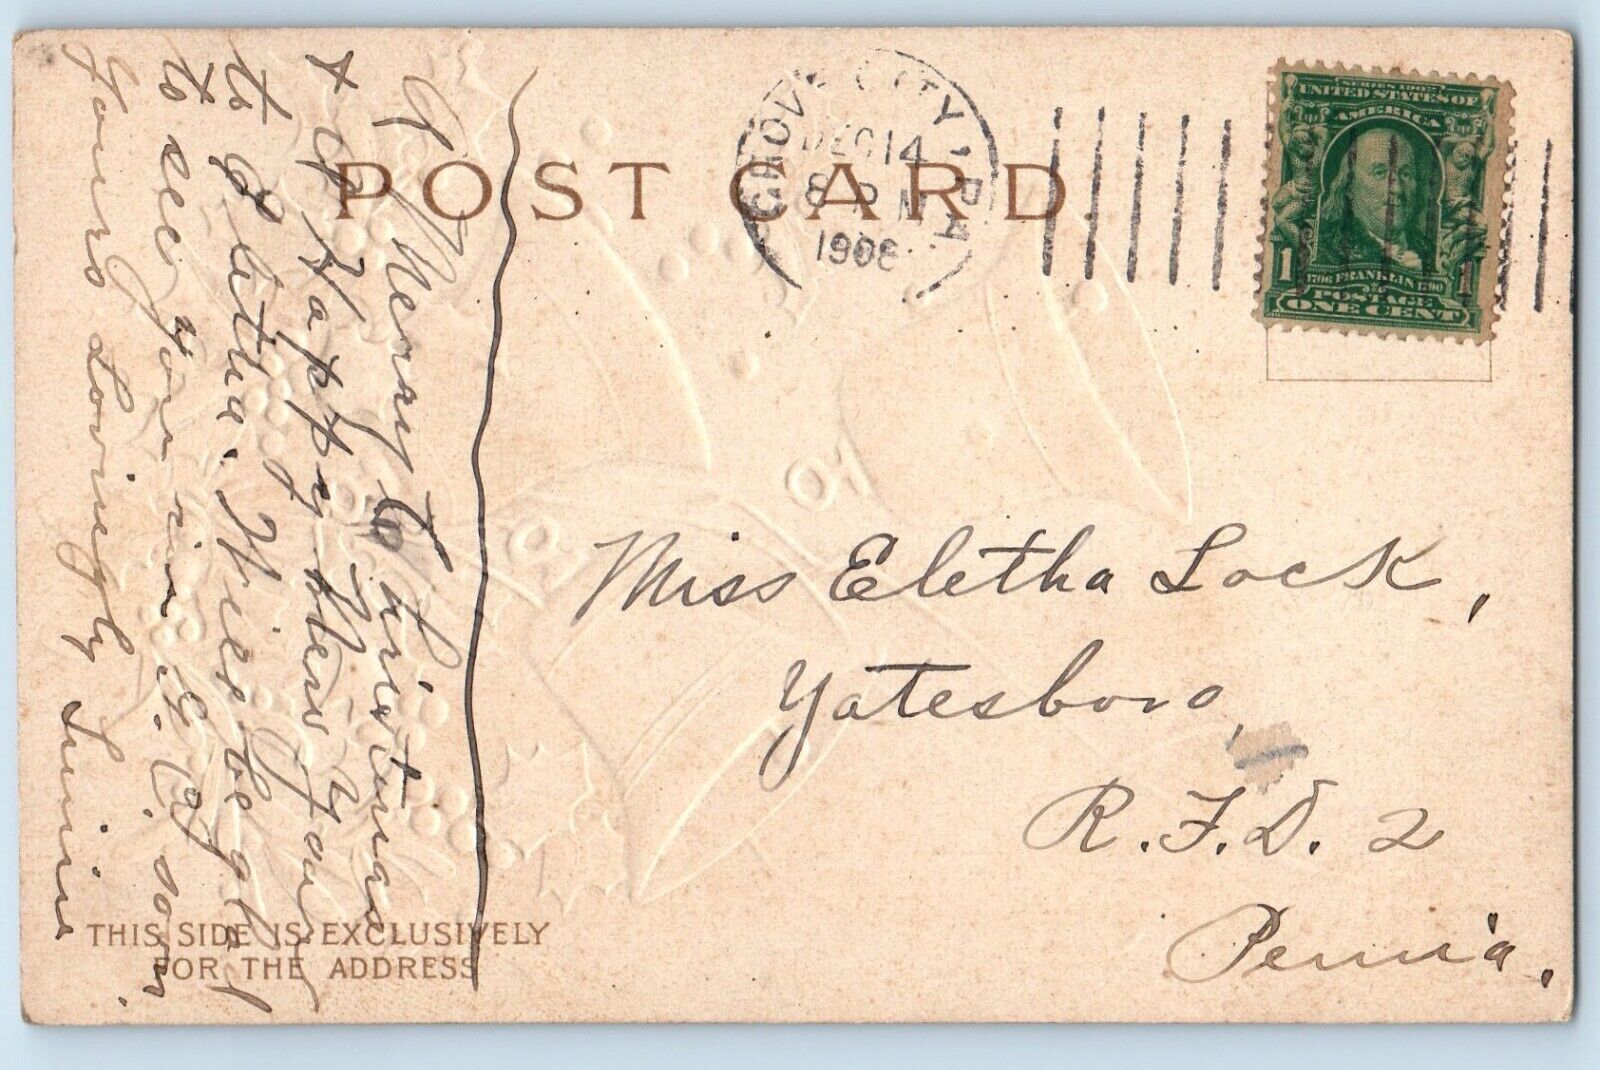 POST CARD
GROVE CITY, PA
DEC 14
8 PM
1908
SERIES 1902
UNITED STATES OF
AMERICA
1706 FRANKLIN 1790
POSTAGE
1 1
ONE CENT
A Merry Christmas
+ a Happy New Year
to Eletha. Will be glad
to see you in G. C. soon.
Yours Lovingly
Miss Eletha Lock,
Yatesboro,
R.F.D. 2
Penn'a.
THIS SIDE IS EXCLUSIVELY
FOR THE ADDRESS